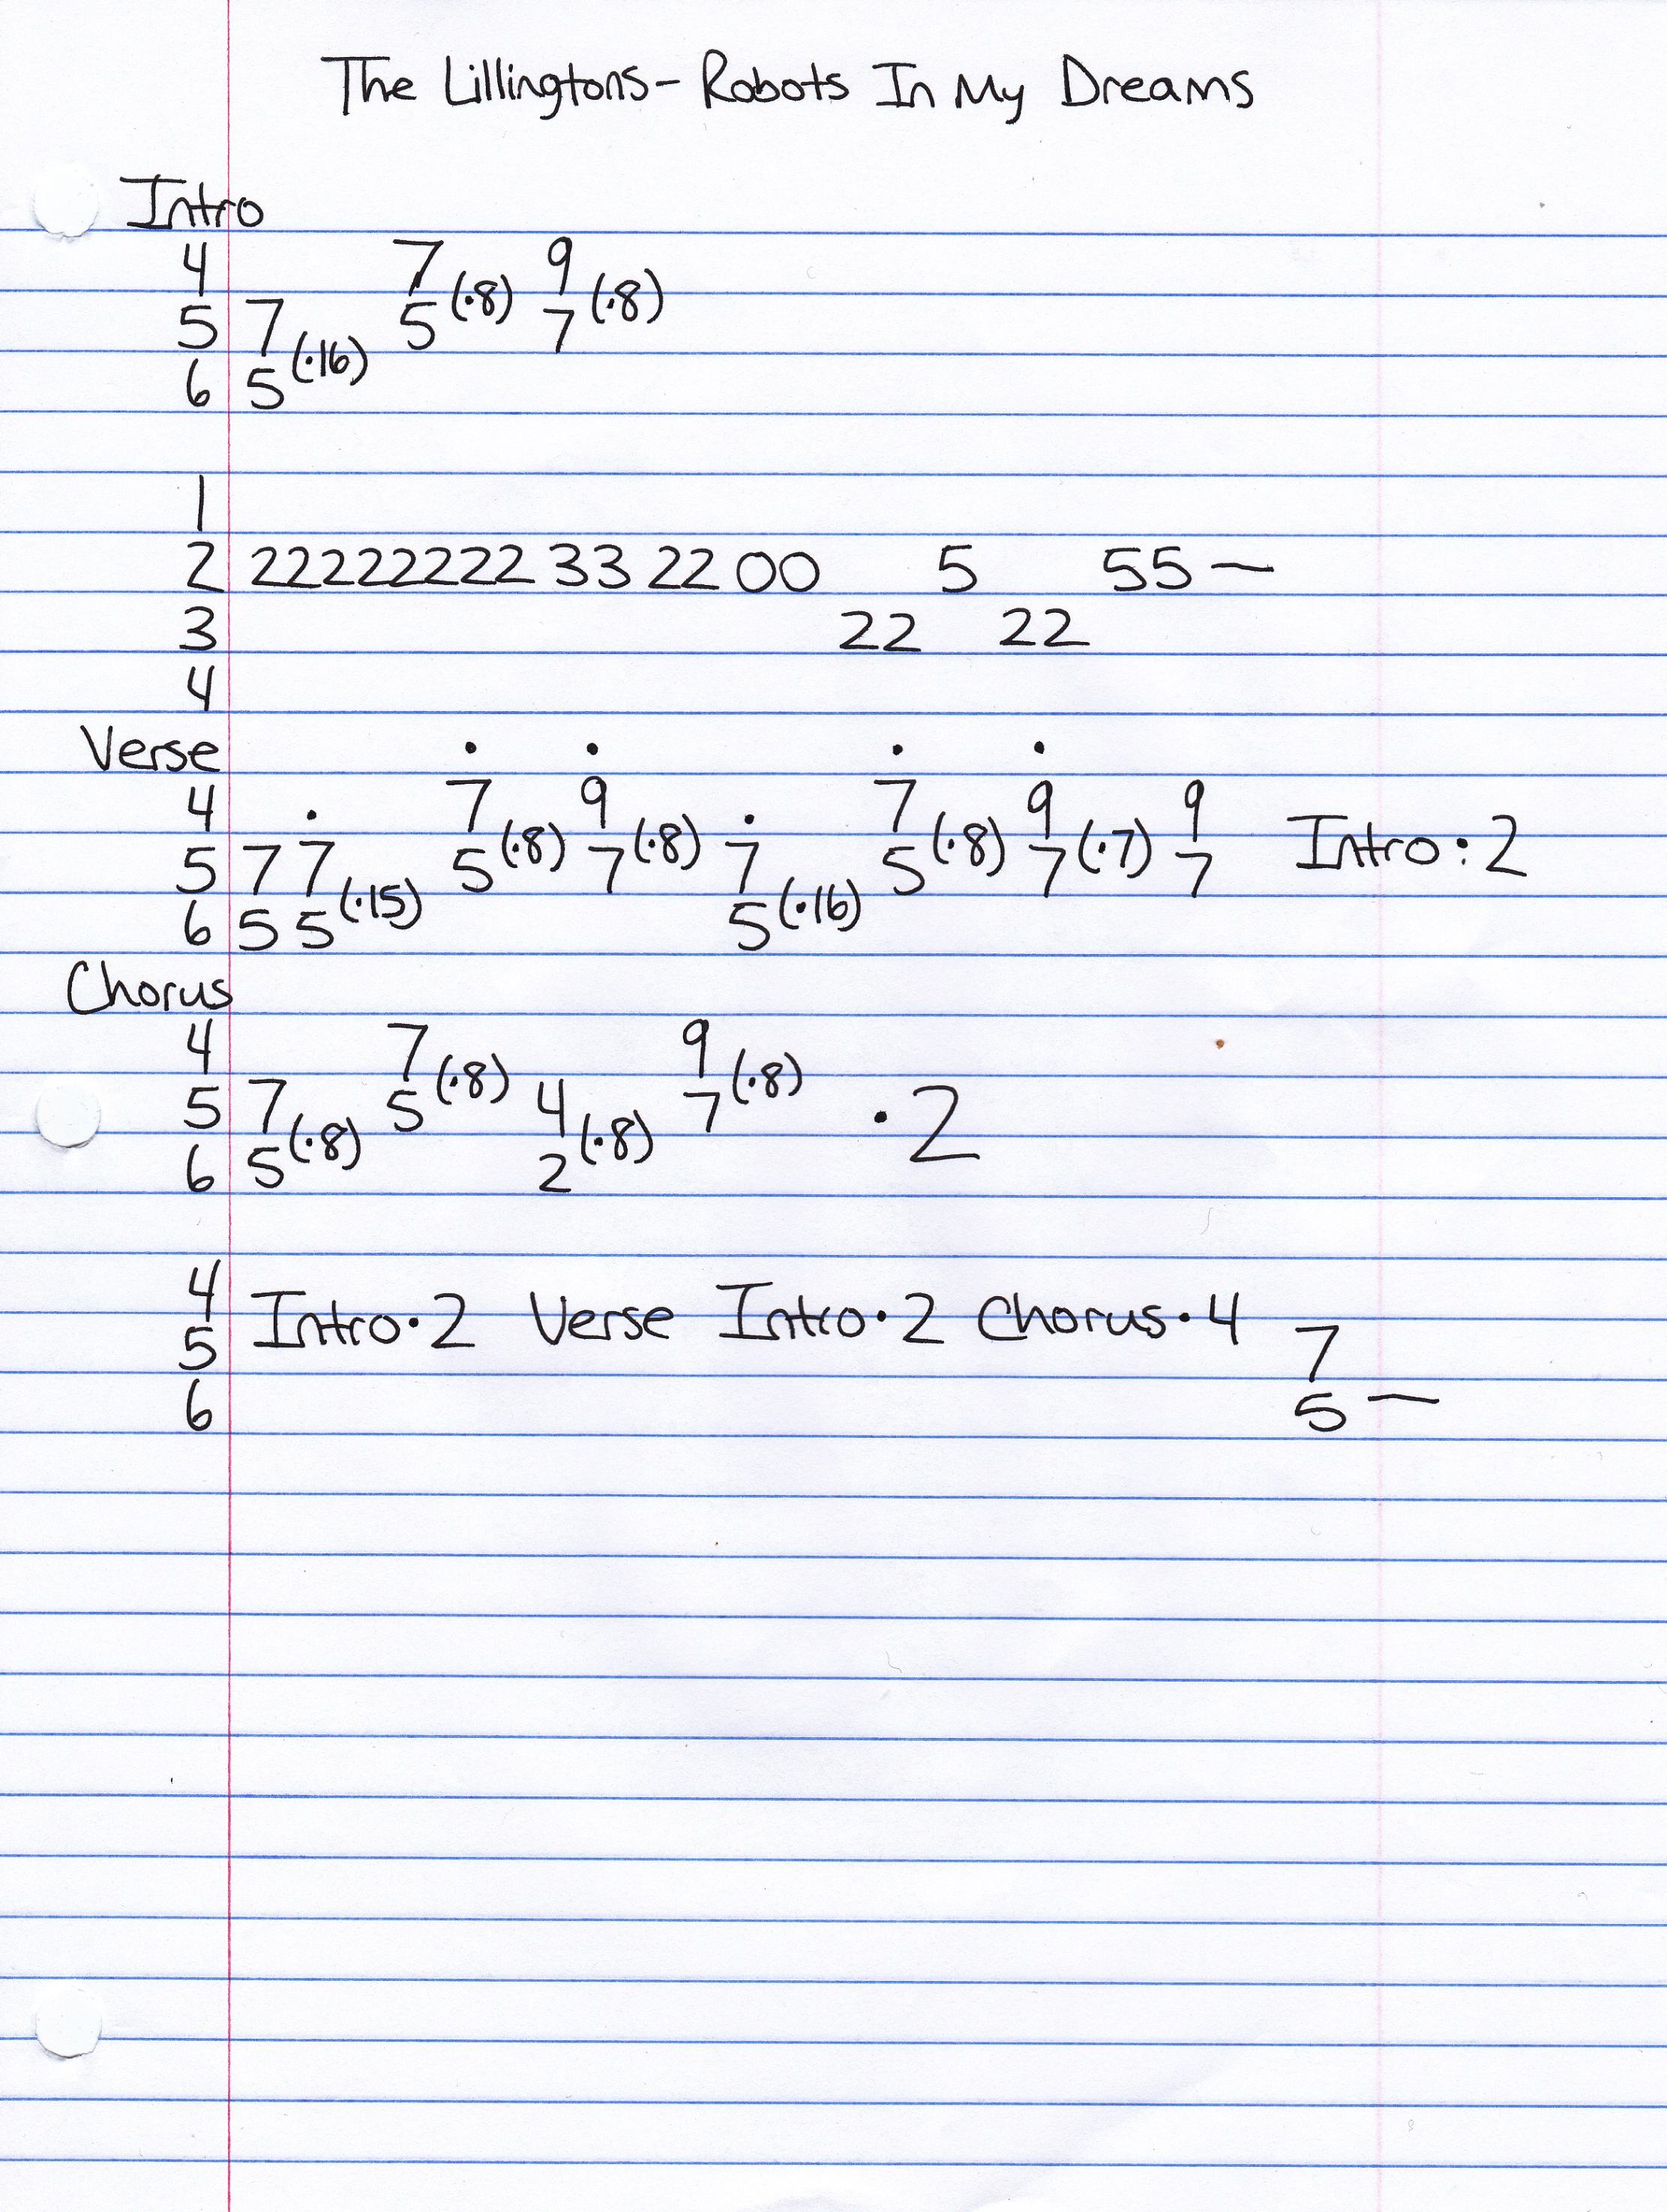 The Lillingtons - Robots In My Dreams
Intro
4 7 (·8) 9 (·8)
5 7 (·16) 5 7
6 5
1
2 22222222 33 22 00 5 55 —
3 22 22
4
Verse · · · ·
4 · 7 (·8) 9 (·8) · 7 (·8) 9 (·7) 9
5 7 7 (·15) 5 7 7 (·16) 5 7 7 Intro : 2
6 5 5 5
Chorus
4 7 (·8) 9 (·8)
5 7 (·8) 5 4 (·8) 7 · 2
6 5 2
4 Intro · 2 Verse Intro · 2 Chorus · 4
5 7
6 5 —